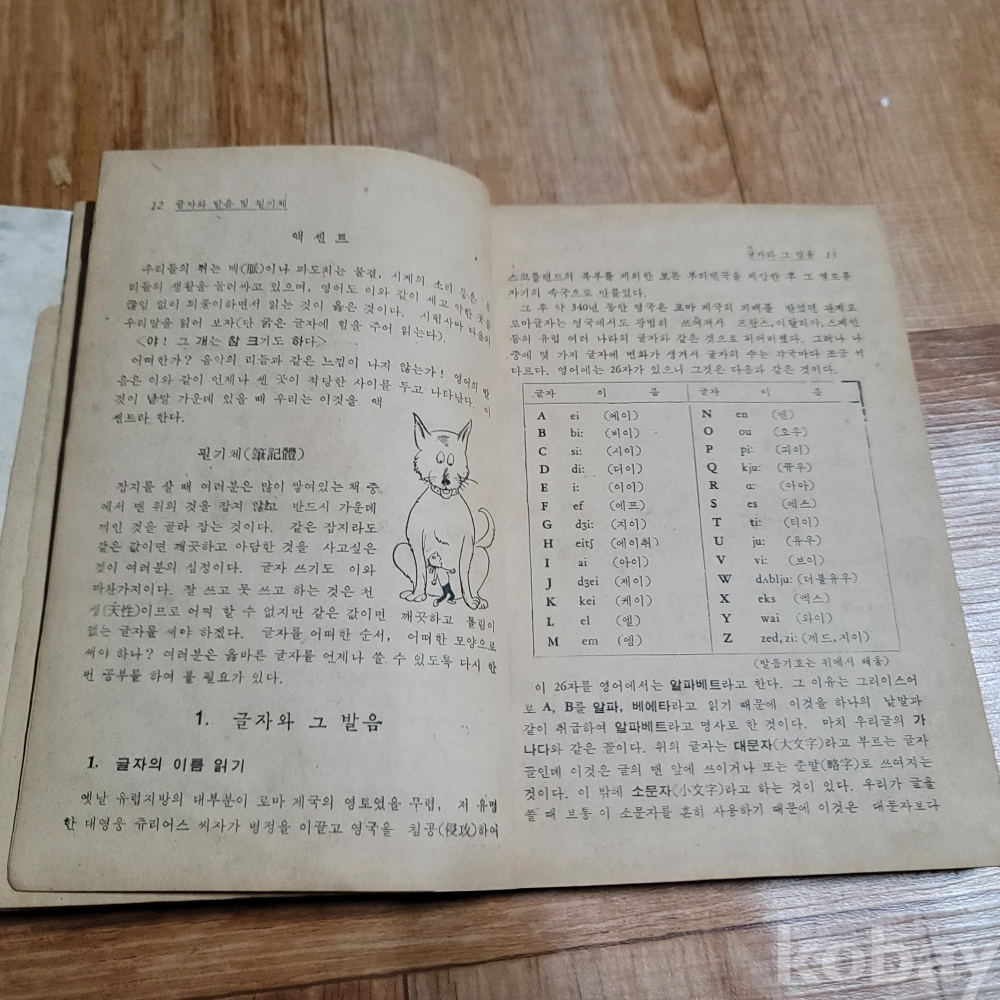 12 글자와 발음 및 필기체
액 센 트
우리들의 뛰는 맥(脈)이나 파도치는 물결, 시계의 소리 등은
리들의 생활을 둘러싸고 있으며, 영어도 이와 같이 세고 약한 곳을
끊임 없이 되풀이하면서 읽는 것이 옳은 것이다. 시험삼아 다음의
우리말을 읽어 보자(단 굵은 글자에 힘을 주어 읽는다).
<야! 그 개는 참 크기도 하다>
어떠한가? 음악의 리듬과 같은 느낌이 나지 않는가! 영어의 발
음은 이와 같이 언제나 센 곳이 적당한 사이를 두고 나타난다. 이
것이 낱말 가운데 있을 때 우리는 이것을 액
센트라 한다.
필기체(筆記體)
잡지를 살 때 여러분은 많이 쌓여있는 책 중
에서 맨 위의 것을 잡지 않고 반드시 가운데
끼인 것을 골라 잡는 것이다. 같은 잡지라도
같은 값이면 깨끗하고 아담한 것을 사고싶은
것이 여러분의 심정이다. 글자 쓰기도 이와
마찬가지이다. 잘 쓰고 못 쓰고 하는 것은 천
성(天性)이므로 어찌 할 수 없지만 같은 값이면 깨끗하고 틀림이
없는 글자를 써야 하겠다. 글자를 어떠한 순서, 어떠한 모양으로
써야 하나? 여러분은 옳바른 글자를 언제나 쓸 수 있도록 다시 한
번 공부를 하여 볼 필요가 있다.
1. 글자와 그 발음
1. 글자의 이름 읽기
옛날 유럽지방의 대부분이 로마 제국의 영토였을 무렵, 저 유명
한 대영웅 쥬리어스 씨자가 병정을 이끌고 영국을 침공(侵攻)하여
글자와 그 발음 13
스코틀랜드의 북부를 제외한 모든 부리탠국을 제압한 후 그 영토를
자기의 속국으로 만들었다.
그 후 약 340년 동안 영국은 로마 제국의 지배를 받았던 관계로
로마글자는 영국에서도 광범히 쓰여져서 프랑스, 이탈리아, 스페인
등의 유럽 여러 나라의 글자와 같은 것으로 되어버렸다. 그러나 나
중에 몇 가지 글자에 변화가 생겨서 글자의 수는 각국마다 조금 씩
다르다. 영어에는 26자가 있으니 그것은 다음과 같은 것이다.
글자 이 름 글자 이 름
A ei (에이) N en (엔)
B bi: (비이) O ou (오우)
C si: (시이) P pi: (피이)
D di: (디이) Q kju: (큐우)
E i: (이이) R ɑ: (아아)
F ef (에프) S es (에스)
G dʒi: (지이) T ti: (티이)
H eitʃ (에이취) U ju: (유우)
I ai (아이) V vi: (브이)
J dʒei (제이) W dʌblju: (더블유우)
K kei (케이) X eks (엑스)
L el (엘) Y wai (와이)
M em (엠) Z zed, zi: (제드, 지이)
(발음기호는 뒤에서 배움)
이 26자를 영어에서는 알파베트라고 한다. 그 이유는 그리이스어
로 A, B를 알파, 베에타라고 읽기 때문에 이것을 하나의 낱말과
같이 취급하여 알파베트라고 명사로 한 것이다. 마치 우리글의 가
나다와 같은 꼴이다. 위의 글자는 대문자(大文字)라고 부르는 글자
꼴인데 이것은 글의 맨 앞에 쓰이거나 또는 준말(略字)로 쓰여지는
것이다. 이 밖에 소문자(小文字)라고 하는 것이 있다. 우리가 글을
쓸 때 보통 이 소문자를 흔히 사용하기 때문에 이것은 대문자보다
kobay